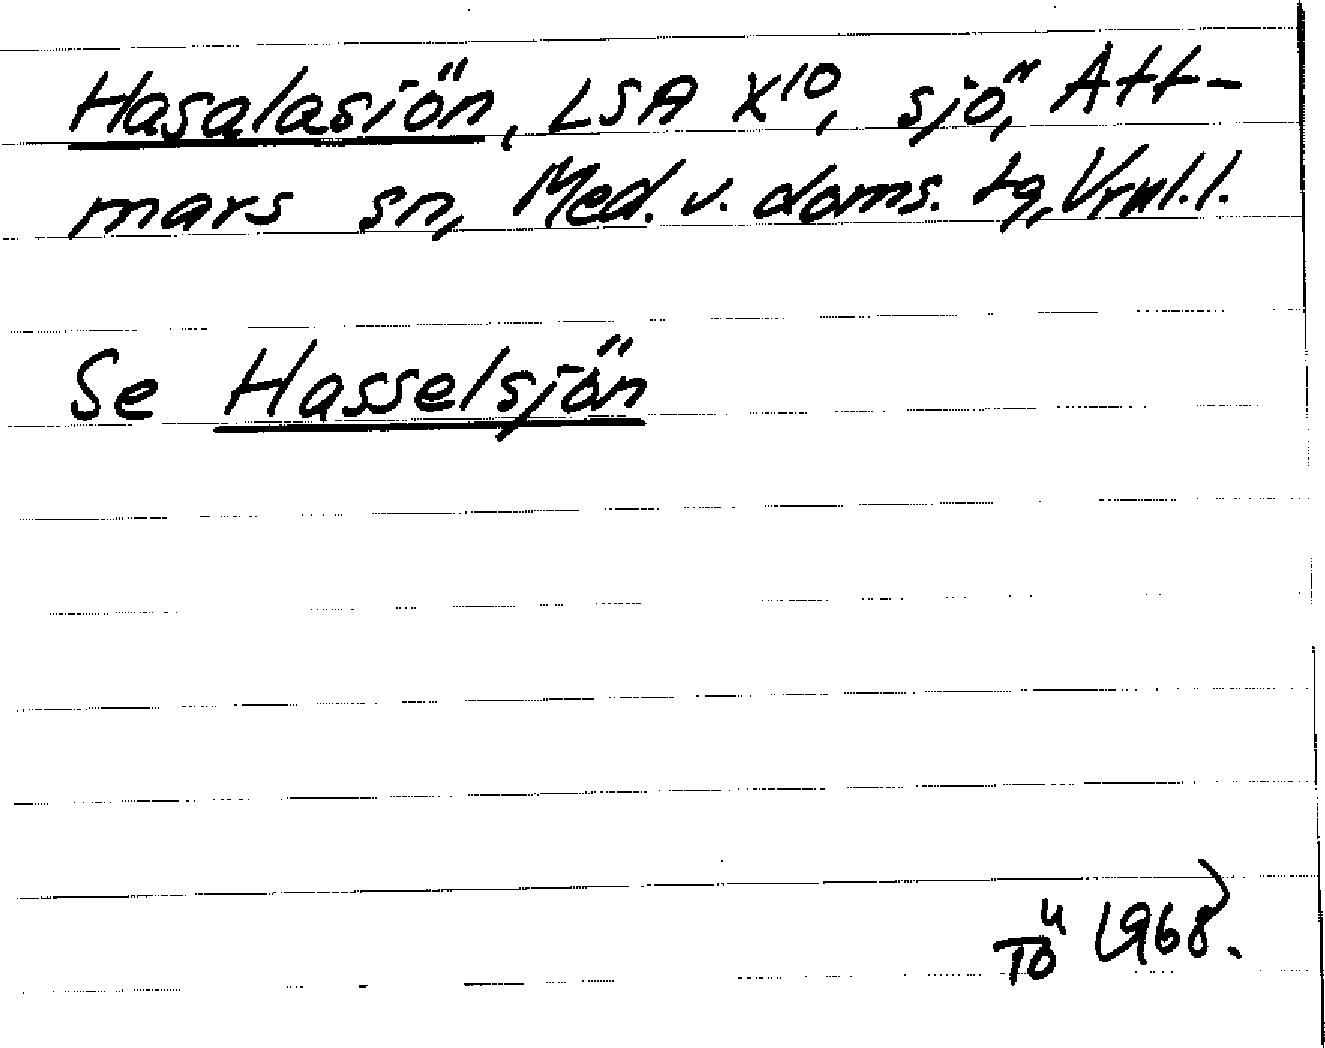 Hasalasiön, LSA X10, sjö, Att-
mars sn, Med. v. doms. tg, Vrml. l.
Se Hasselsjön
TÖ (1968).